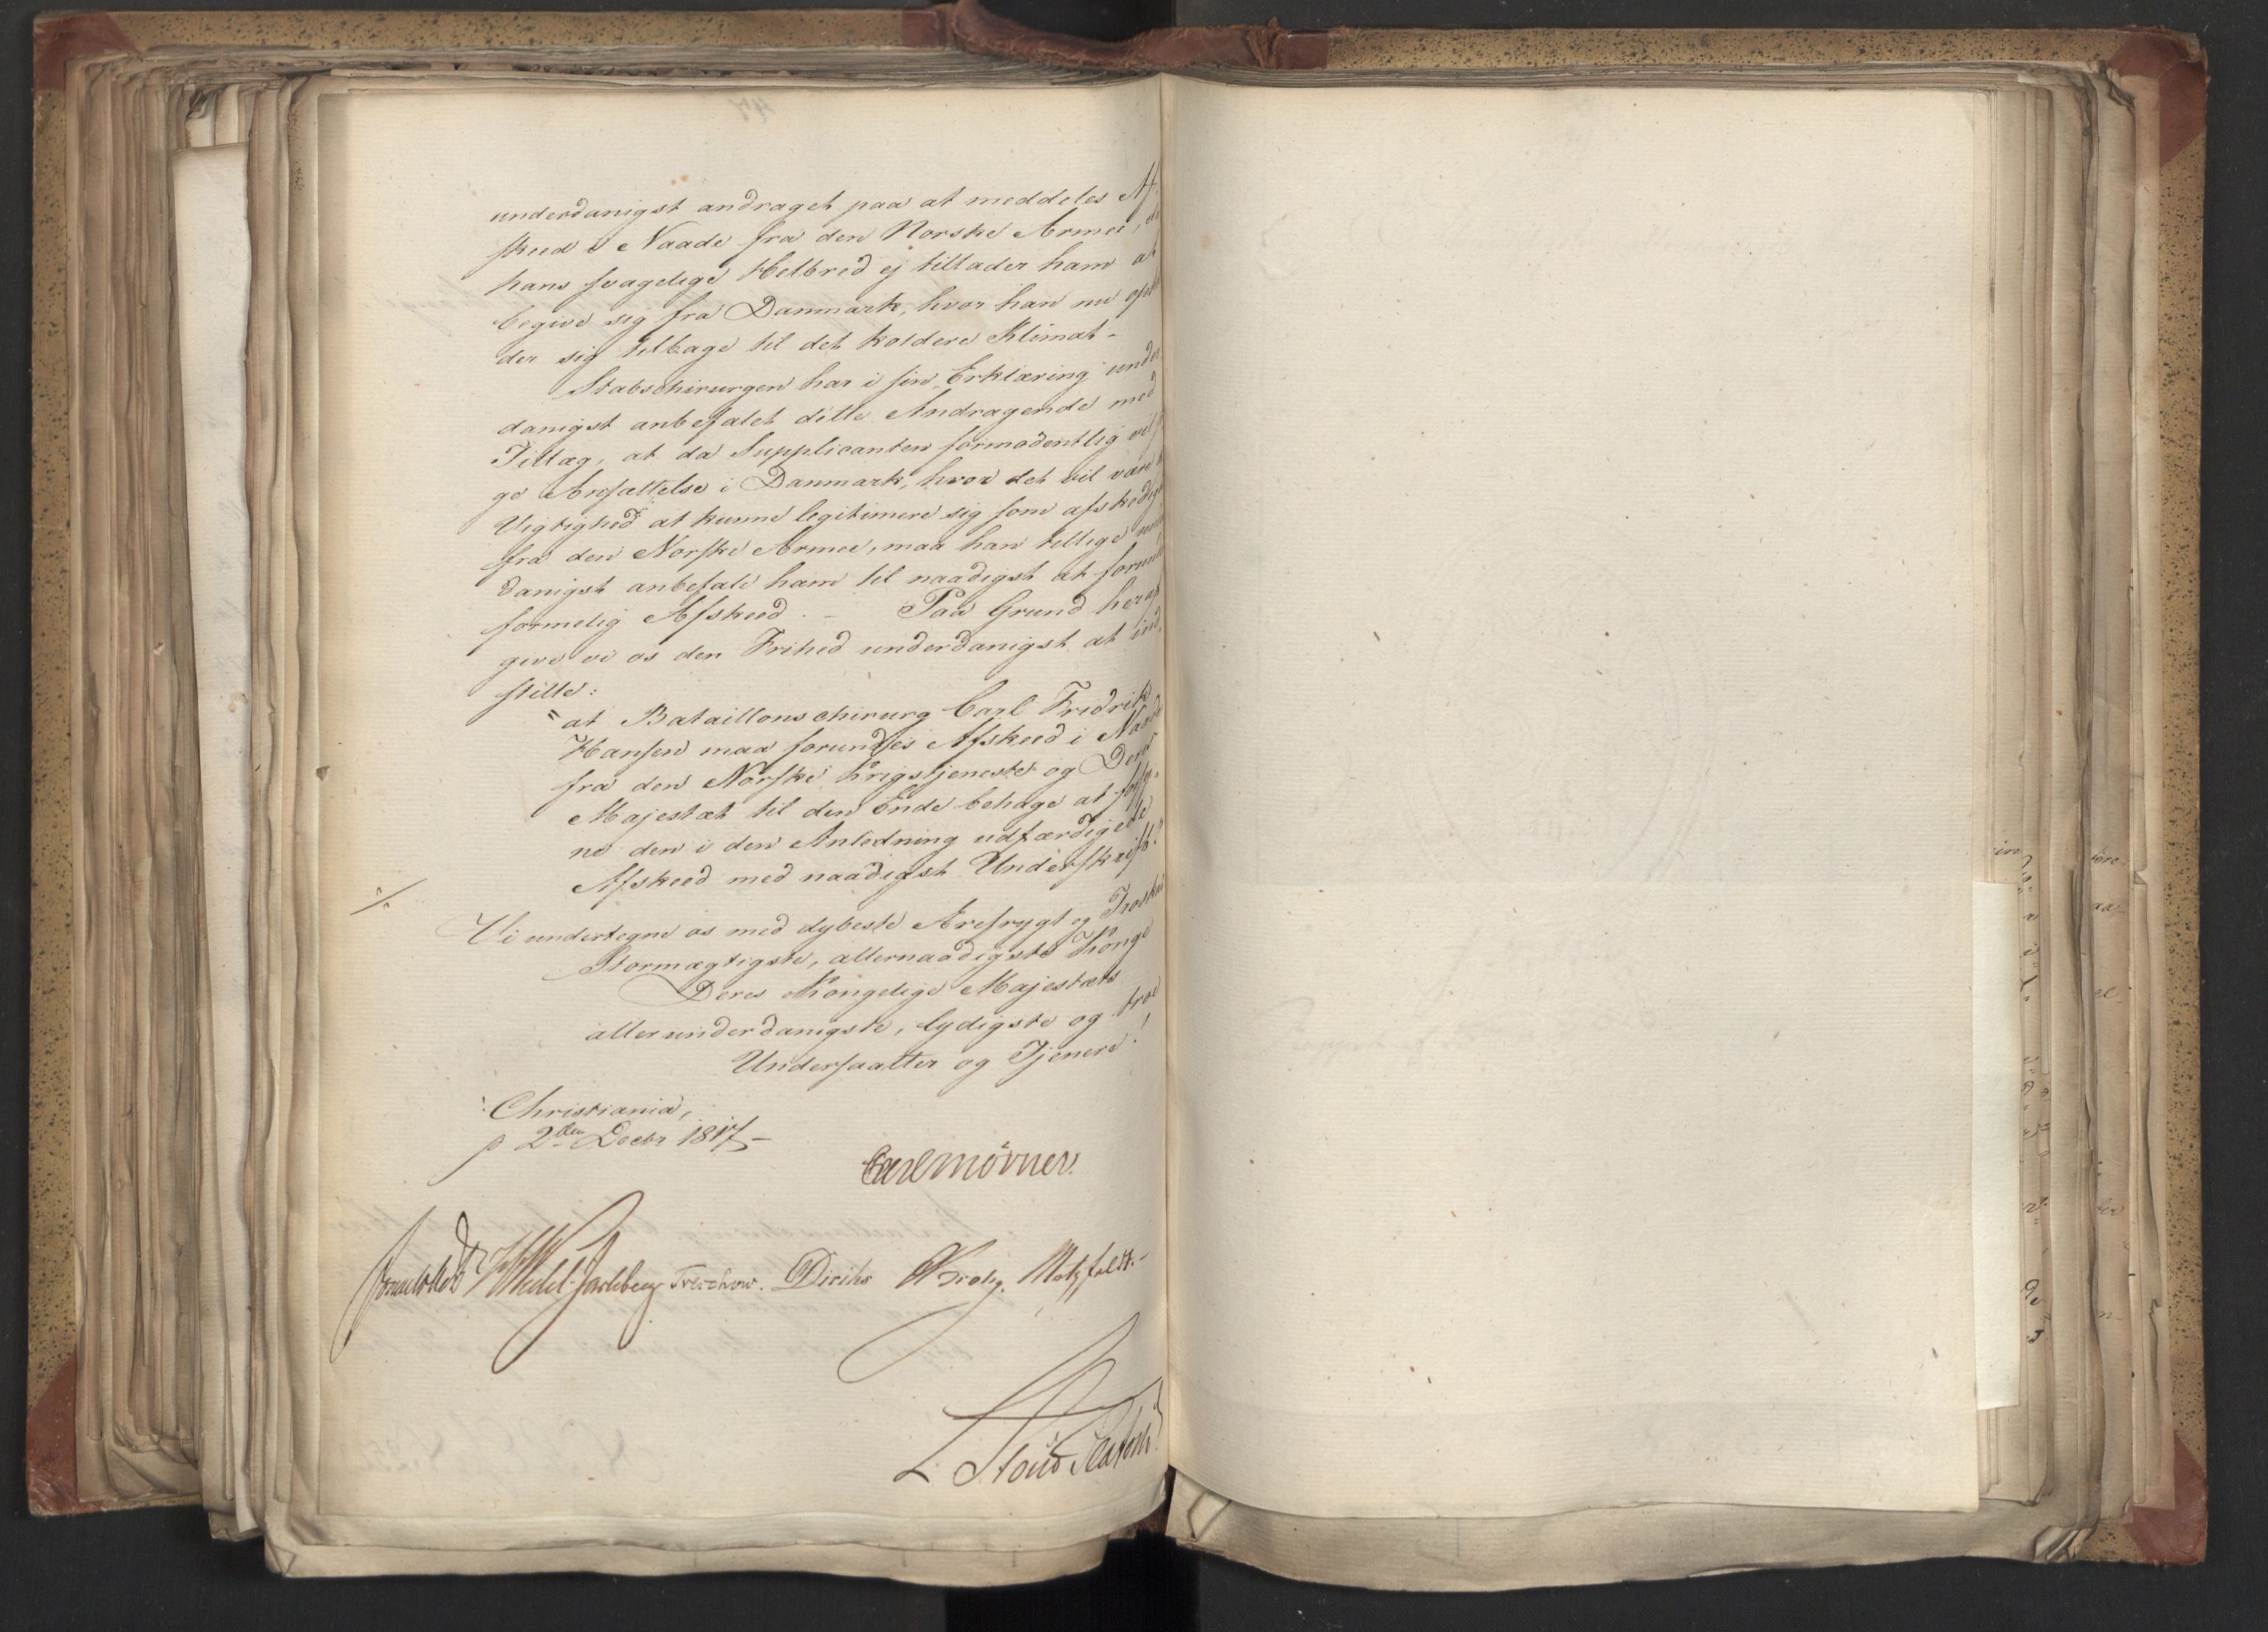 underdanigst andraget paa at meddeles Af-
skeed i Naade fra den Norske Armee, da
hans svagelige Helbred ej tillader ham at
begive sig fra Danmark, hvor han nu ophol
der sig tilbage til det koldere Klimat-
Stabschirurgen har i sin Erklæring under
danigst anbefalet dette Andragende med
Tillæg, at da Supplicanten formodentlig vil sø
ge Ansættelse i Danmark, hvor det vil være
Vigtighed at kunne legitimere sig som afskediget
fra den Norske Armee, maa han tillige under
danigst anbefale ham til naadigst at forundes
formelig Afskeed. – Paa Grund heraf
give vi os den Frihed underdanigst at ind,
stille:
"at Bataillonschirurg Carl Fredrik
Hansen maa forundes Afskeed i Naade
fra den Norske Krigstjeneste og Deres
Majestæt til den Ende behage at forsy-
ne den i den Anledning udfærdigede
Afskeed med naadigst Underskrift."
Vi undertegne os med dybeste Ærefrygt og Troskab
Stormægtigste, allernaadigste Konge
Deres Kongelige Majestæts
allerunderdanigste, lydigste og troe
Undersaatter og Tjenere!
Christiania,
d 2den Decbr 1817-
Carl Mörner.
Sommerhielm HWedel-Jarlsberg Treschow. Diriks Krohg. Motzfeldt.-